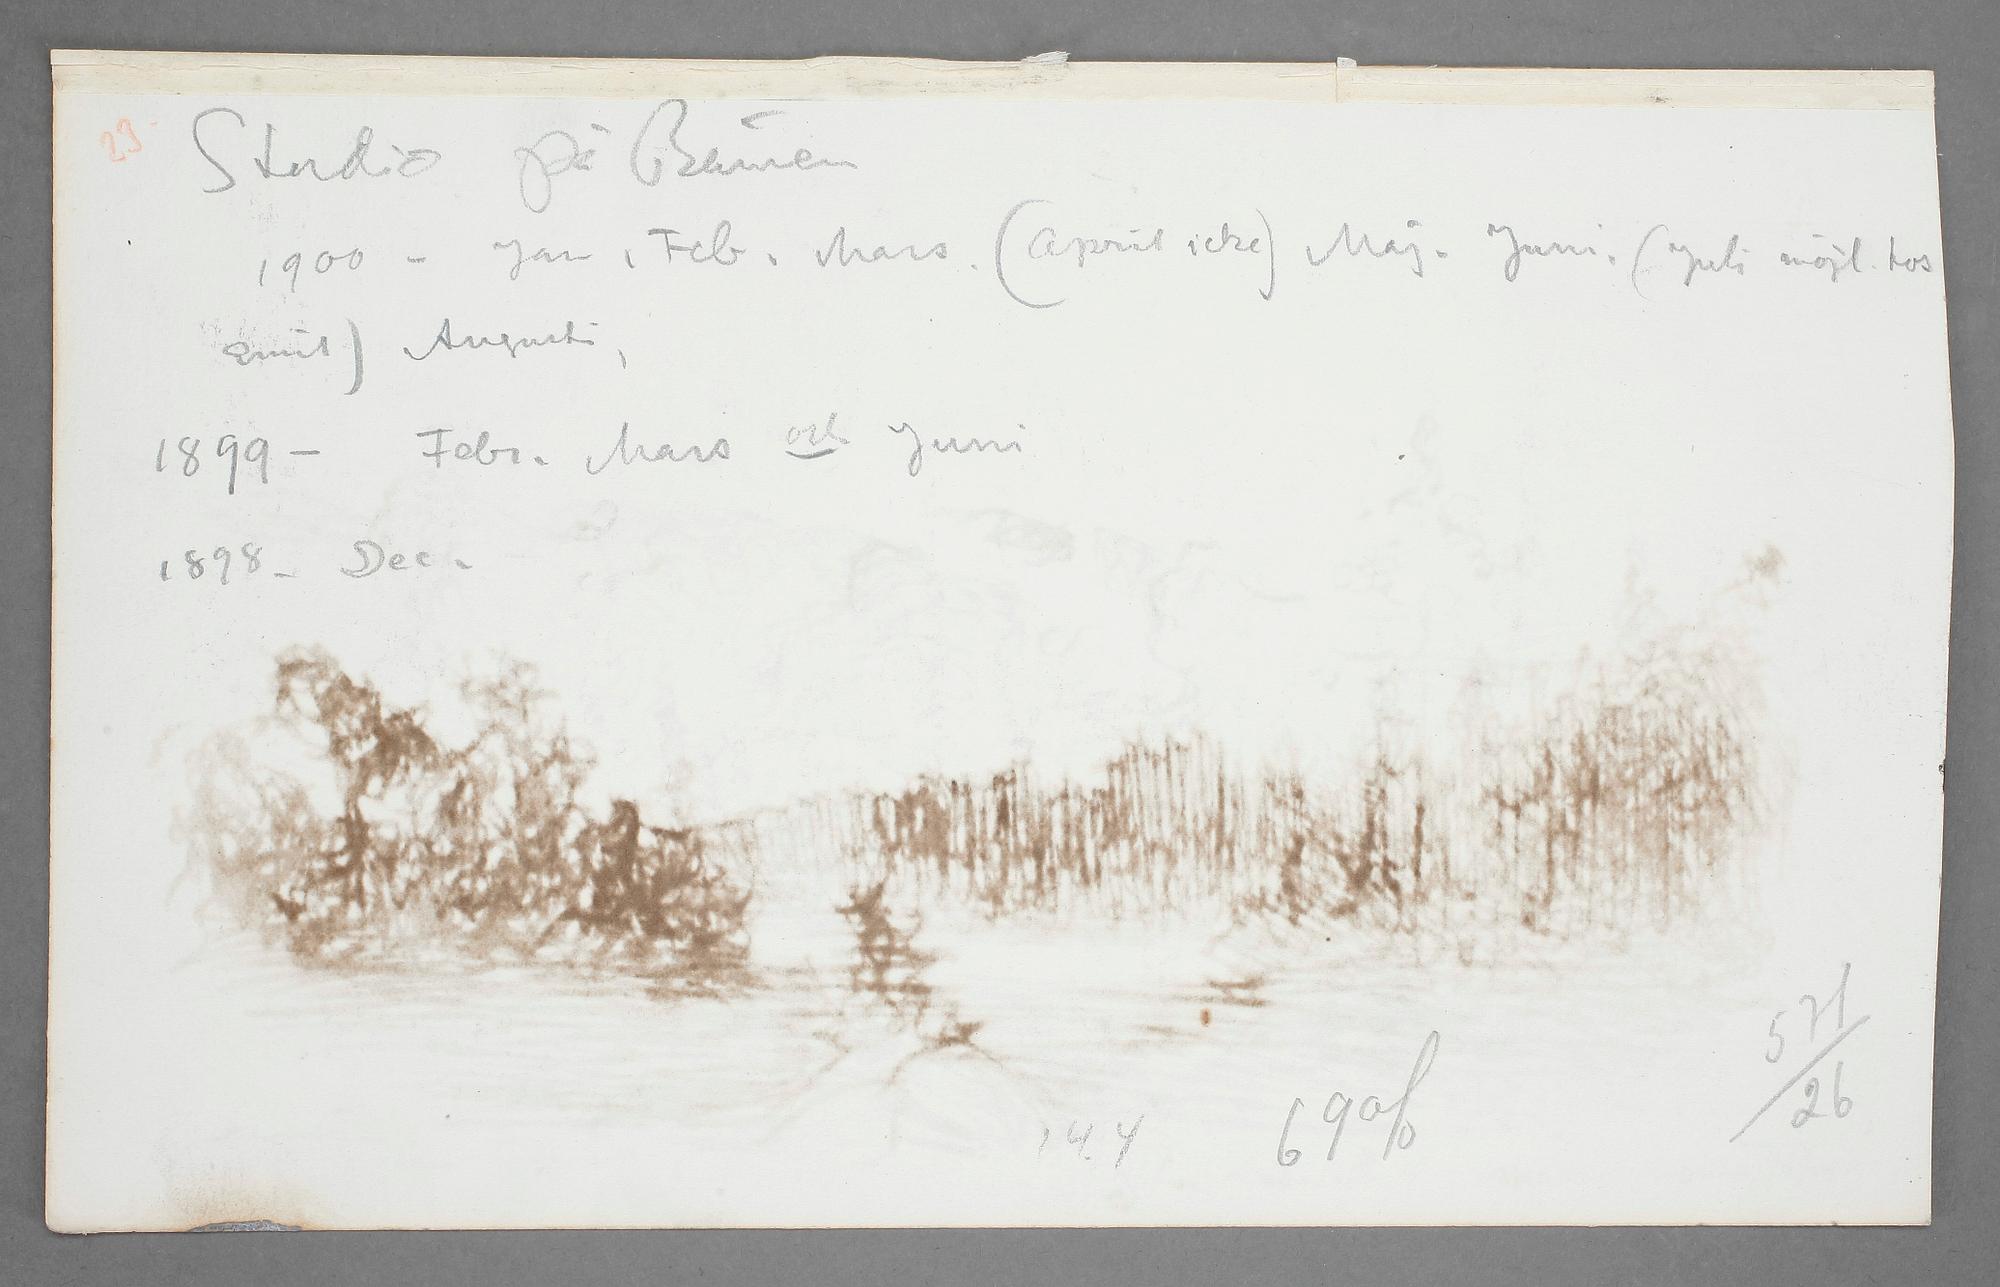 23
Studio på
1900 - Jan, Feb. Mars. (April icke) Maj. Juni. (Juli möjl. hos
Emil) Augusti,
1899 - Febr. Mars och Juni
1898 - Dec.
571/26
69%
14.4